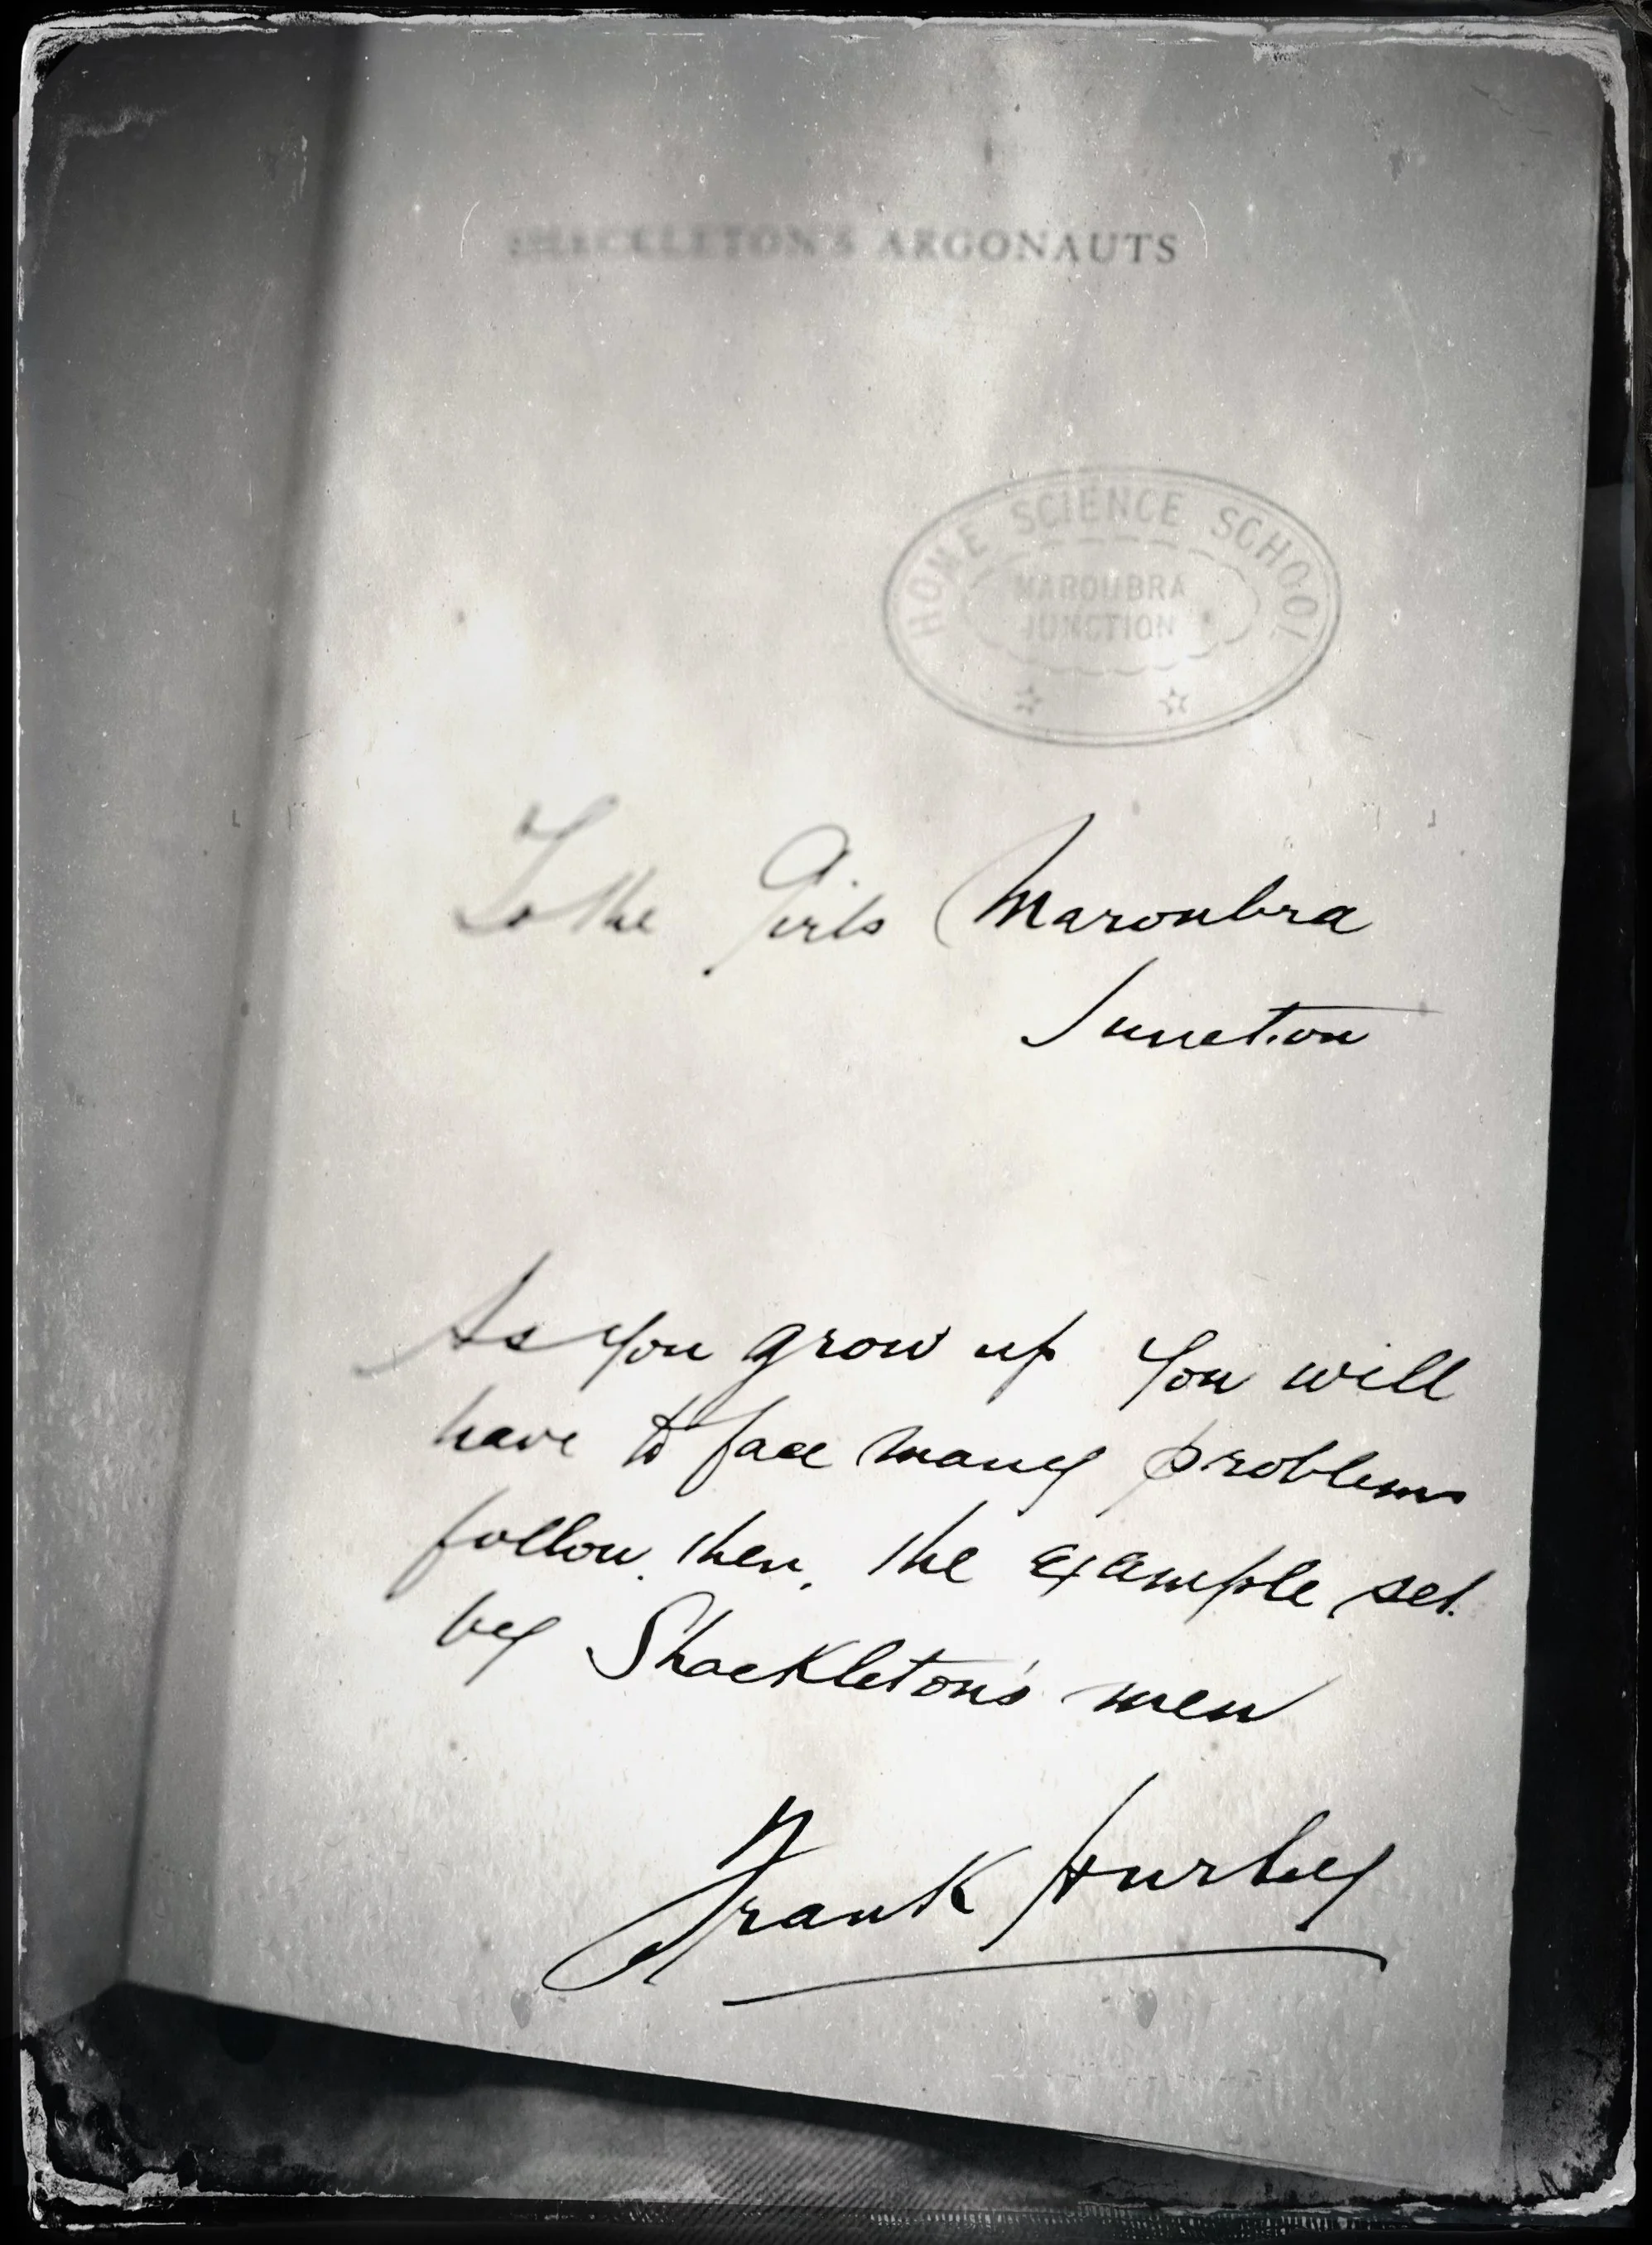 SHACKLETON'S ARGONAUTS
HOME SCIENCE SCHOOL
MAROUBRA
JUNCTION
To the Girls Maroubra
Junction
As you grow up you will
have to face many problems
follow, then, the example set
by Shackleton's men
Frank Hurley